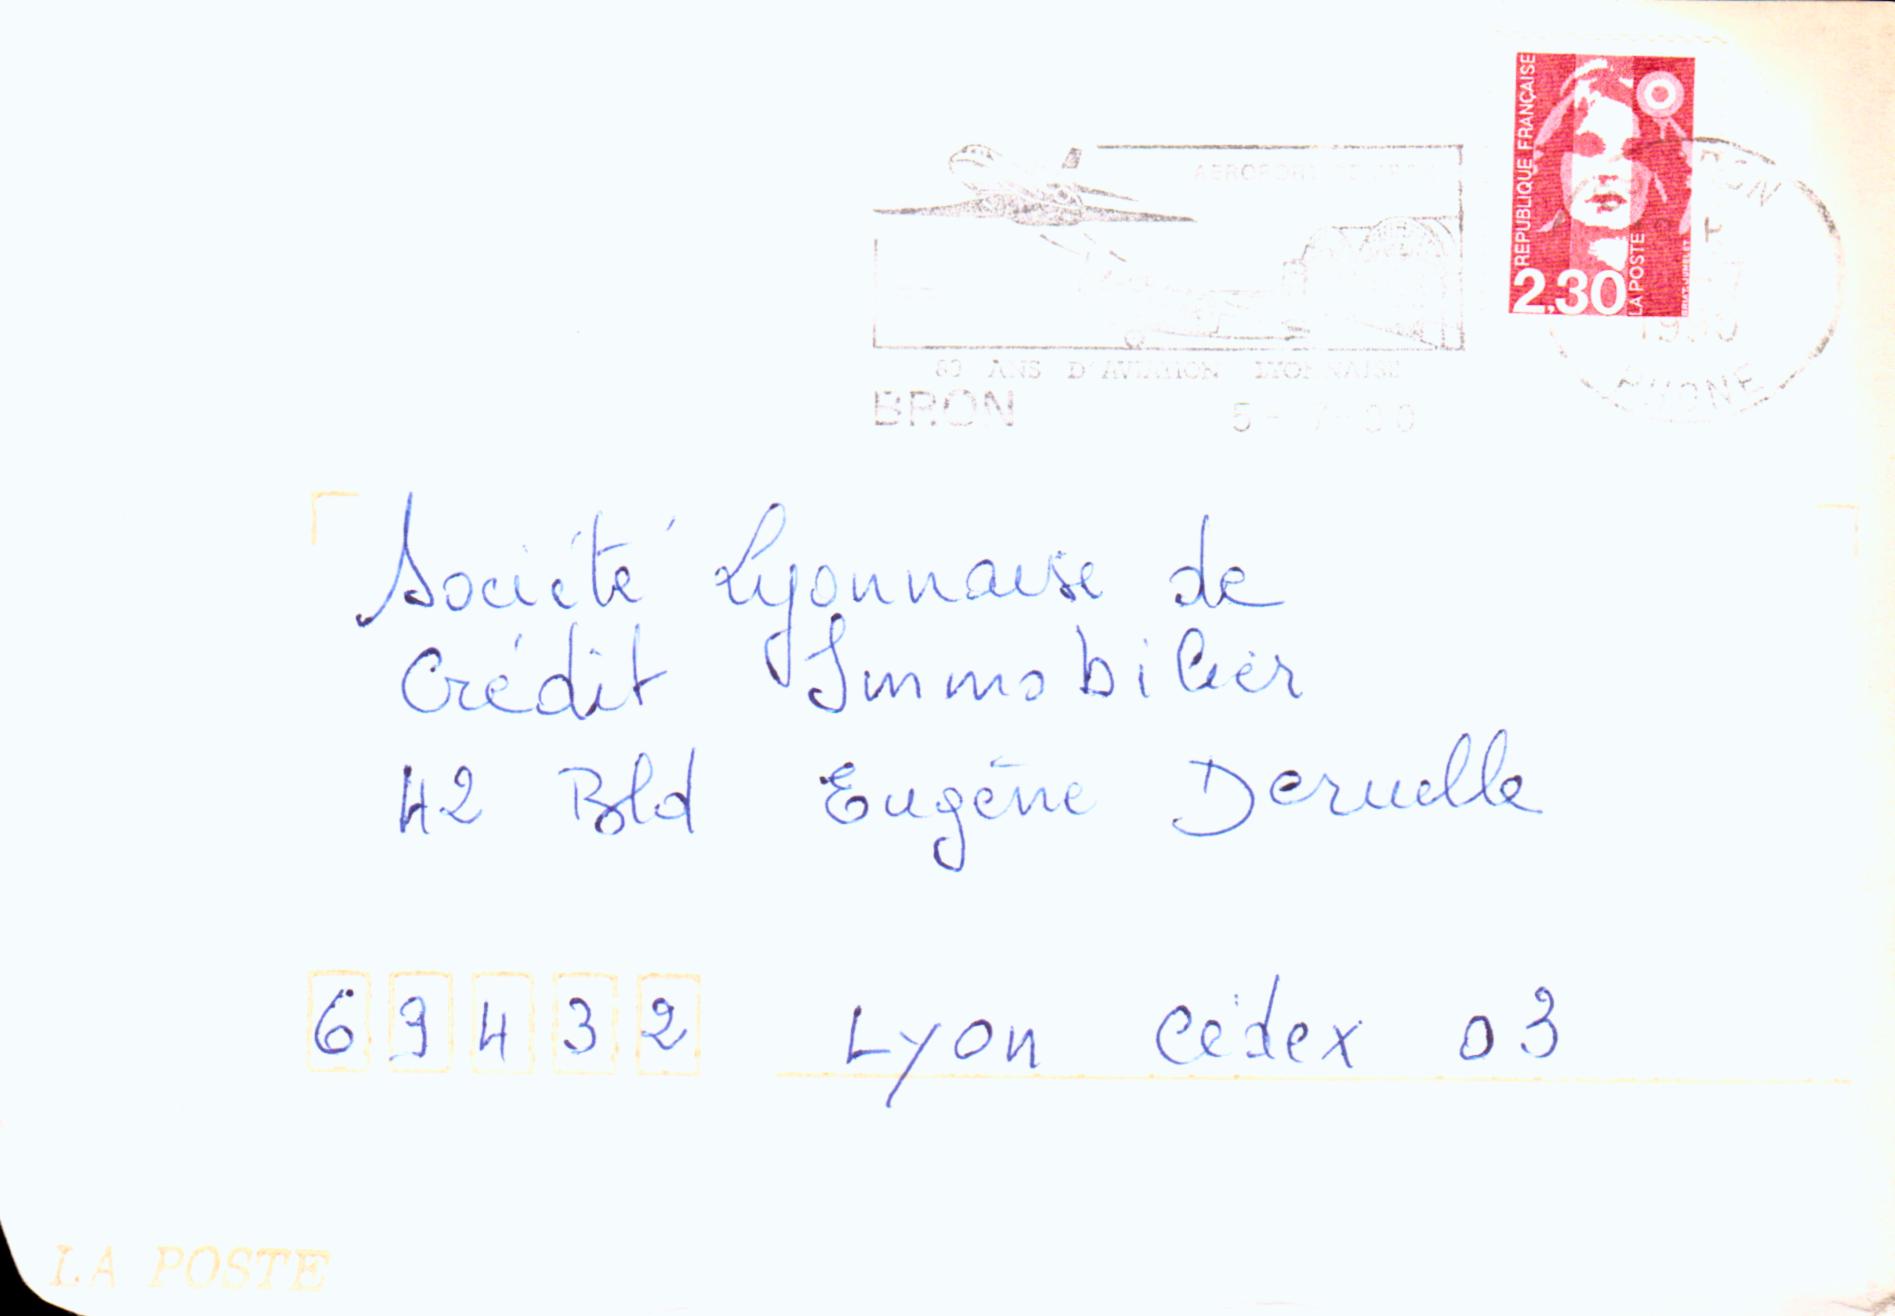 RÉPUBLIQUE FRANÇAISE
2,30
LA POSTE
80 ANS D'AVIATION LYONNAISE
BRON
RHONE
Société Lyonnaise de
Crédit Immobilier
42 Bld Eugène Deruelle
69432 Lyon Cédex 03
LA POSTE